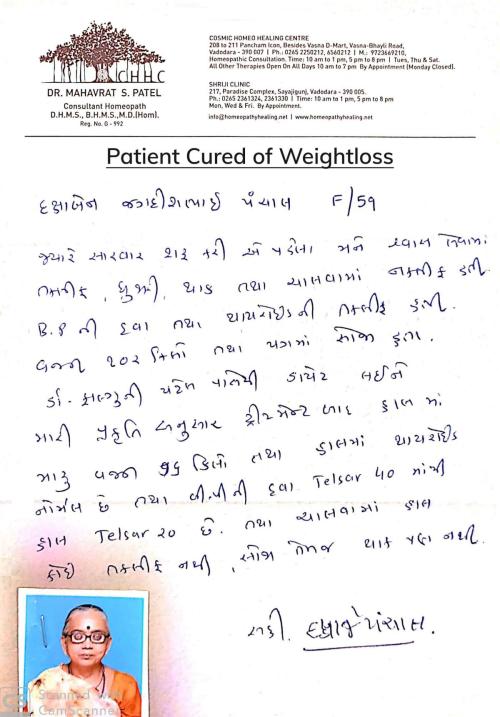 CHHC
DR. MAHAVRAT S. PATEL
Consultant Homeopath
D.H.M.S., B.H.M.S.,M.D.(Hom).
Reg. No. G - 992
COSMIC HOMEO HEALING CENTRE
208 to 211 Pancham Icon, Besides Vasna D-Mart, Vasna-Bhayli Road,
Vadodara - 390 007 | Ph.: 0265 2250212, 6560212 | M.: 9723669210,
Homeopathic Consultation. Time: 10 am to 1 pm, 5 pm to 8 pm | Tues, Thu & Sat.
All Other Therapies Open On All Days 10 am to 7 pm By Appointment (Monday Closed).
SHRIJI CLINIC
217, Paradise Complex, Sayajigunj, Vadodara - 390 005.
Ph.: 0265 2361324, 2361330 | Time: 10 am to 1 pm, 5 pm to 8 pm
Mon, Wed & Fri. By Appointment.
info@homeopathyhealing.net | www.homeopathyhealing.net
Patient Cured of Weightloss
દક્ષાબેન જગદીશભાઈ પંચાલ F/59
જ્યારે સારવાર શરૂ કરી એ પહેલા મને શ્વાસ લેવામાં
તકલીફ, ધ્રુજારી, થાક તથા ચાલવામાં તકલીફ હતી.
B.P ની દવા તથા થાયરોઈડની તકલીફ હતી.
વજન ૧૦૨ કિલો તથા પગમાં સોજા હતા.
ડૉ. ફાલ્ગુની પટેલ પાસેથી ડાયેટ લઈને
મારી પ્રકૃતિ અનુસાર ટ્રીટમેન્ટ બાદ હાલ માં
મારુ વજન ૭૬ કિલો તથા હાલમાં થાયરોઈડ
નોર્મલ છે તથા બી.પી ની દવા Telsar 40 માંથી
હાલ Telsar 20 છે. તથા ચાલવામાં હાલ
કોઈ તકલીફ નથી, સોજા તેમજ થાક પણ નથી.
સહી. દક્ષાબેન પંચાલ.
CS Scanned with
CamScanner